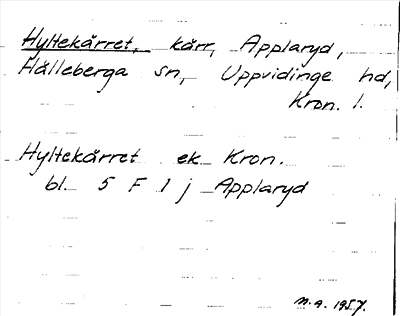 Hyltekärret, kärr, Applaryd,
Hälleberga sn, Uppvidinge hd,
Kron. l.
Hyltekärret ek Kron.
bl. 5 F 1 j Applaryd
M.A. 1957.